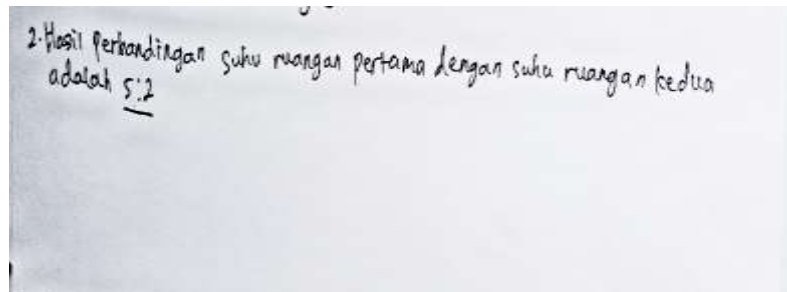 2. Hasil Perbandingan suhu ruangan pertama dengan suhu ruangan kedua
adalah 5:2